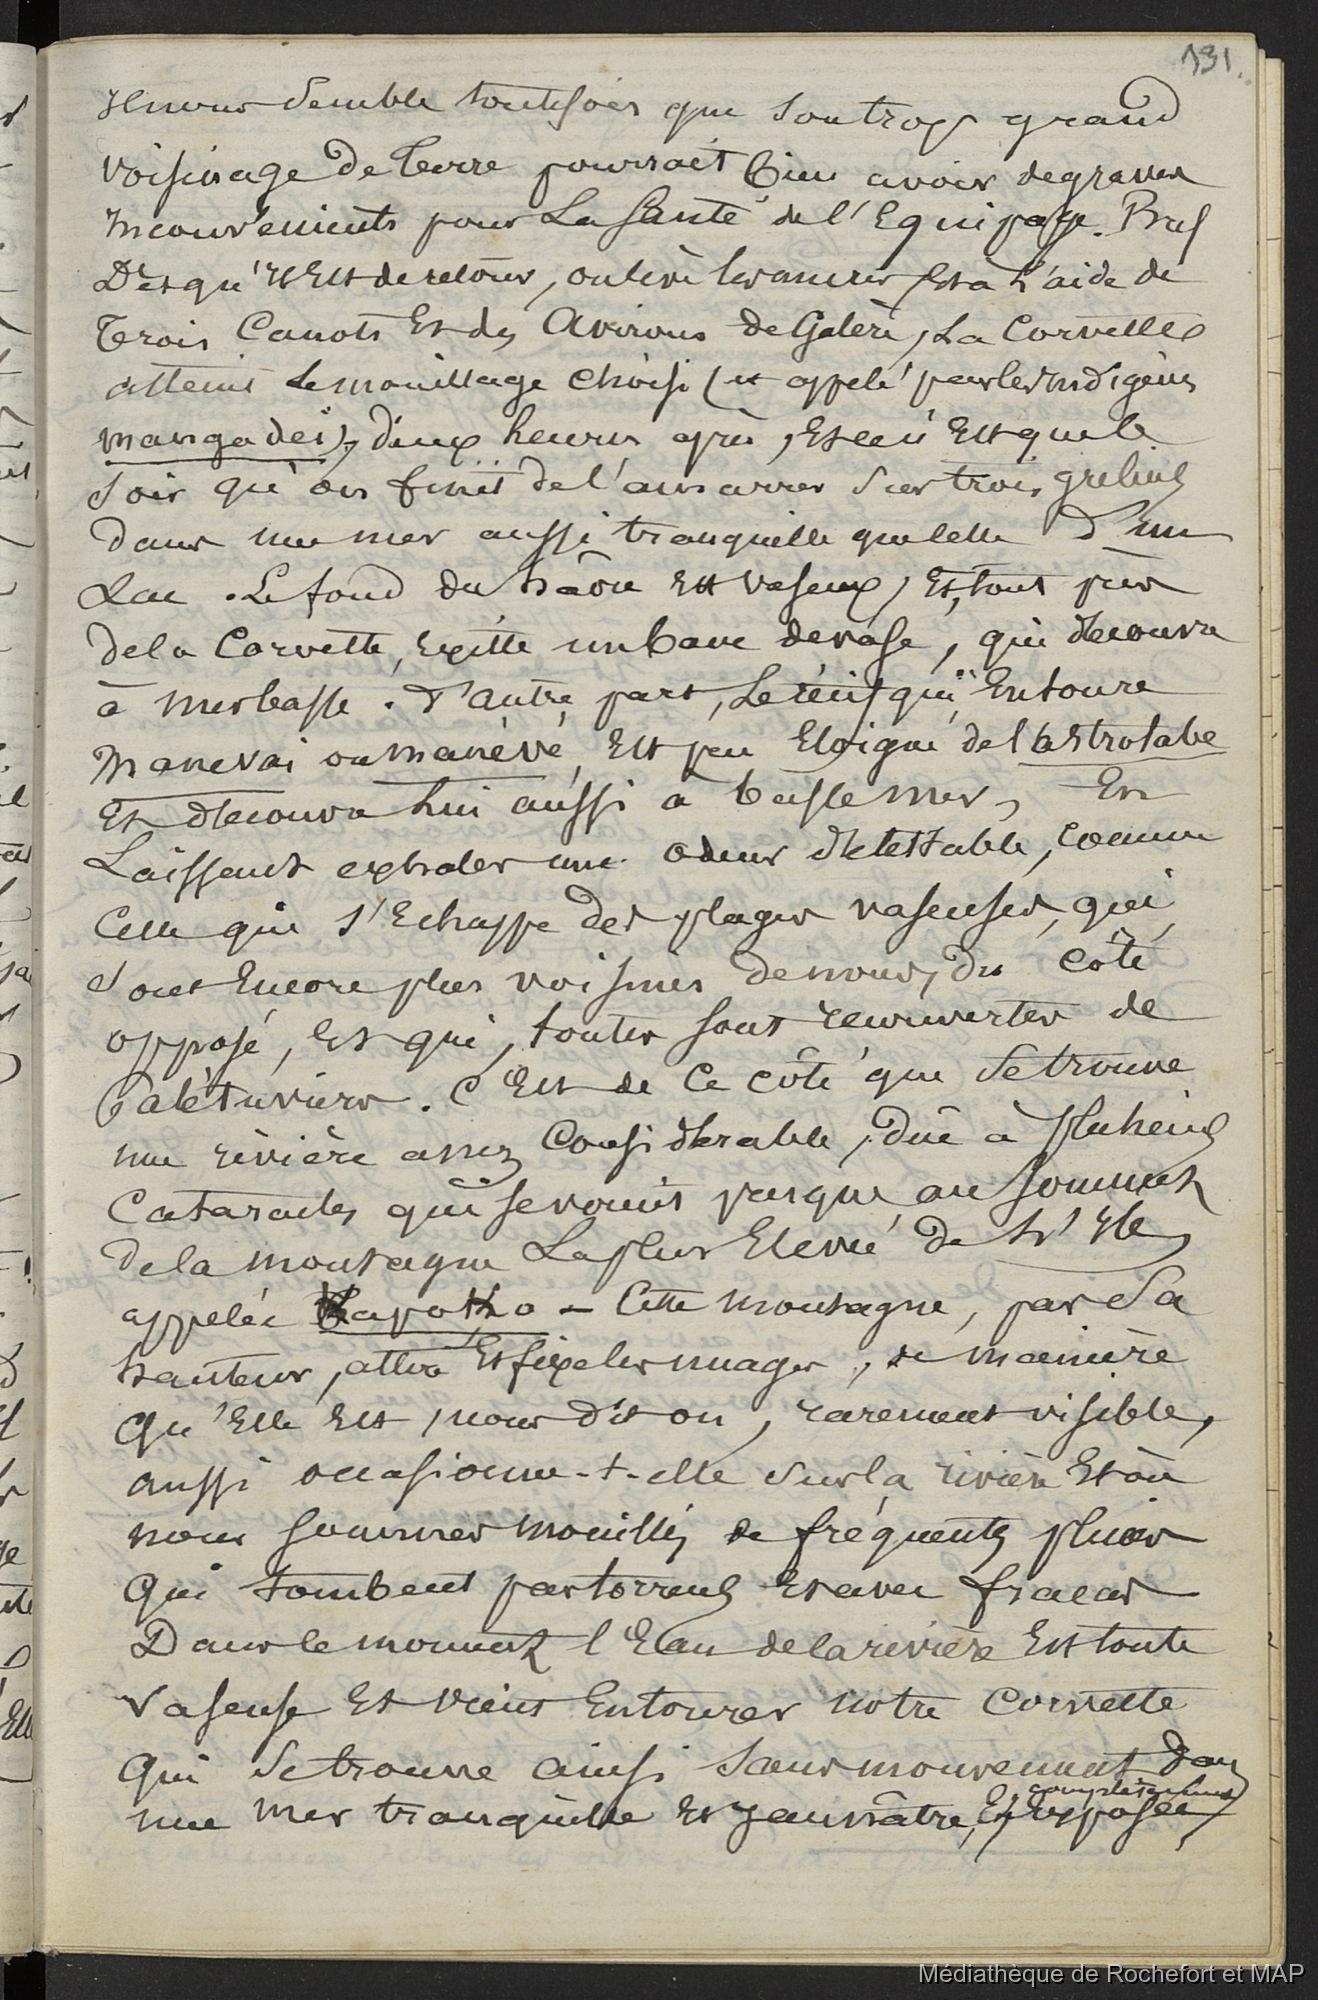 131.
Il nous semble toutefois que son trop grand
voisinage de terre pourrait bien avoir de graves
Inconvénients pour La Santé de l'Equipage. Bref
Dès qu'Il Est de retour, on lève les ancres, Et à L'aide de
Trois Canots Et des Avirons de Galère, La Corvette
atteint Le mouillage Choisi (et appelé par les Indigènes
manga dei), deux heures après, Et ce n'Est que le
Soir qu'on finit de l'amarrer Sur trois grelins
dans une mer aussi tranquille que celle d'un
Lac. Le fond du hâvre Est vaseux, Et, tout près
de la Corvette, Existe un banc de vase, qui découvre
à mer basse. D'autre part, Le récif qui Entoure
Manevai ou manévé, Est peu Eloigné de l'astrolabe
Et découvre lui aussi à basse mer, En
Laissant exhaler une odeur détestable, comme
Celle qui s'Echappe des plages vaseuses, qui,
Sont Encore plus voisines de nous, du Côté
opposé, Et qui, toutes sont recouvertes de
Palétuviers. C'Est de Ce côté que Se trouve
une rivière assez Considérable, dûe à plusieurs
Cataractes qui se voient jusque au Sommet
de la montagne La plus Elevée de L'Ile,
appelée Kapotho - Cette Montagne, par Sa
hauteur, attire Et fixe les nuages, de manière
Qu'Elle Est, nous dit on, rarement visible,
aussi occasionne-t-elle Sur la rivière Et où
nous Sommes mouillés de fréquentes pluies
Qui tombent par torrents Et avec fracas
Dans le moment l'Eau de la rivière Est toute
Vaseuse Et vient Entourer notre Corvette
Qui Se trouve ainsi Sans mouvement dans
complètement
une Mer tranquille Et Jaunâtre, Et Exposée,
Médiathèque de Rochefort et MAP